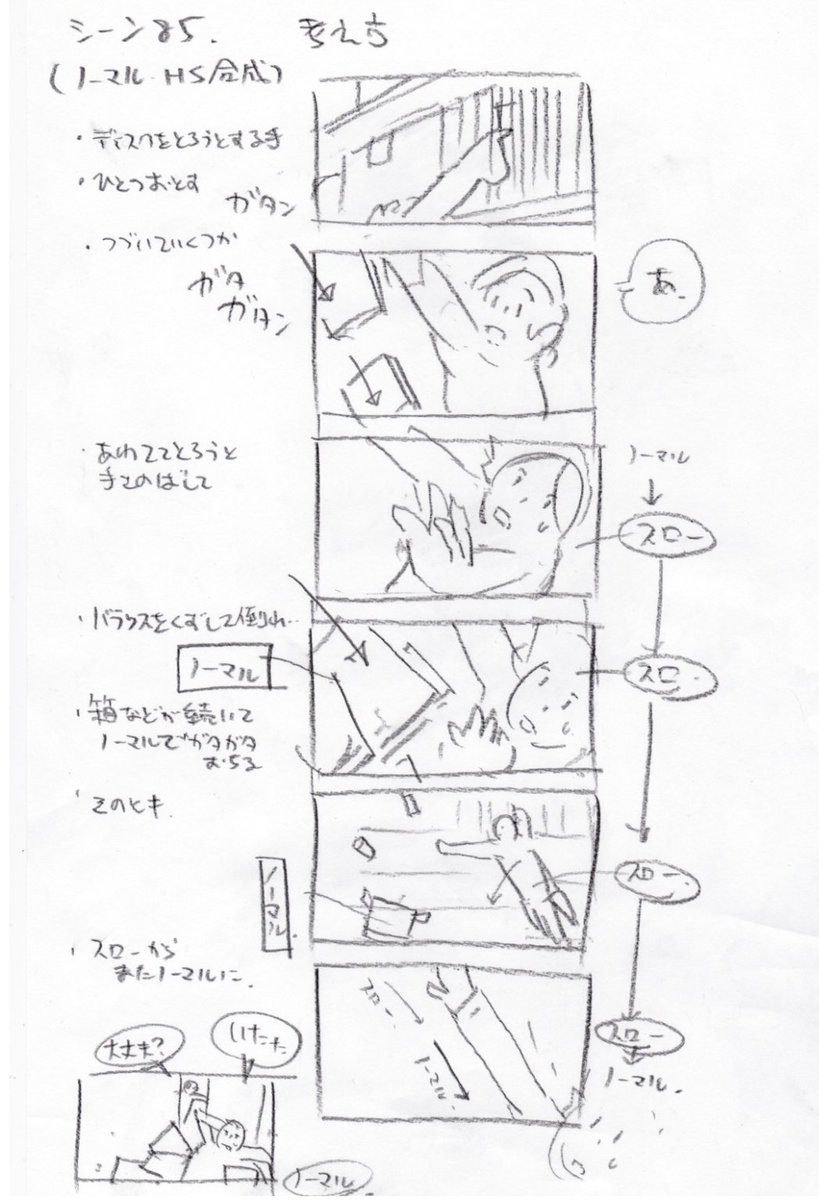 シーン85. 考え方
(ノーマル HS合成)
・ディスクをとろうとする手
・ひとつおとす
ガタン
・つづいていくつか
ガタ
ガタン
あ.
・あわててとろうと
手をのばして
ノーマル
スロー
・バランスをくずして倒れ…
ノーマル
スロー
・箱などが続いて
ノーマルでガタガタ
おちる
・そのヒキ
ノーマル
スロー
・スローから
またノーマルに.
スロー
ノーマル
スロー
ノーマル.
大丈夫?
いたた
ノーマル